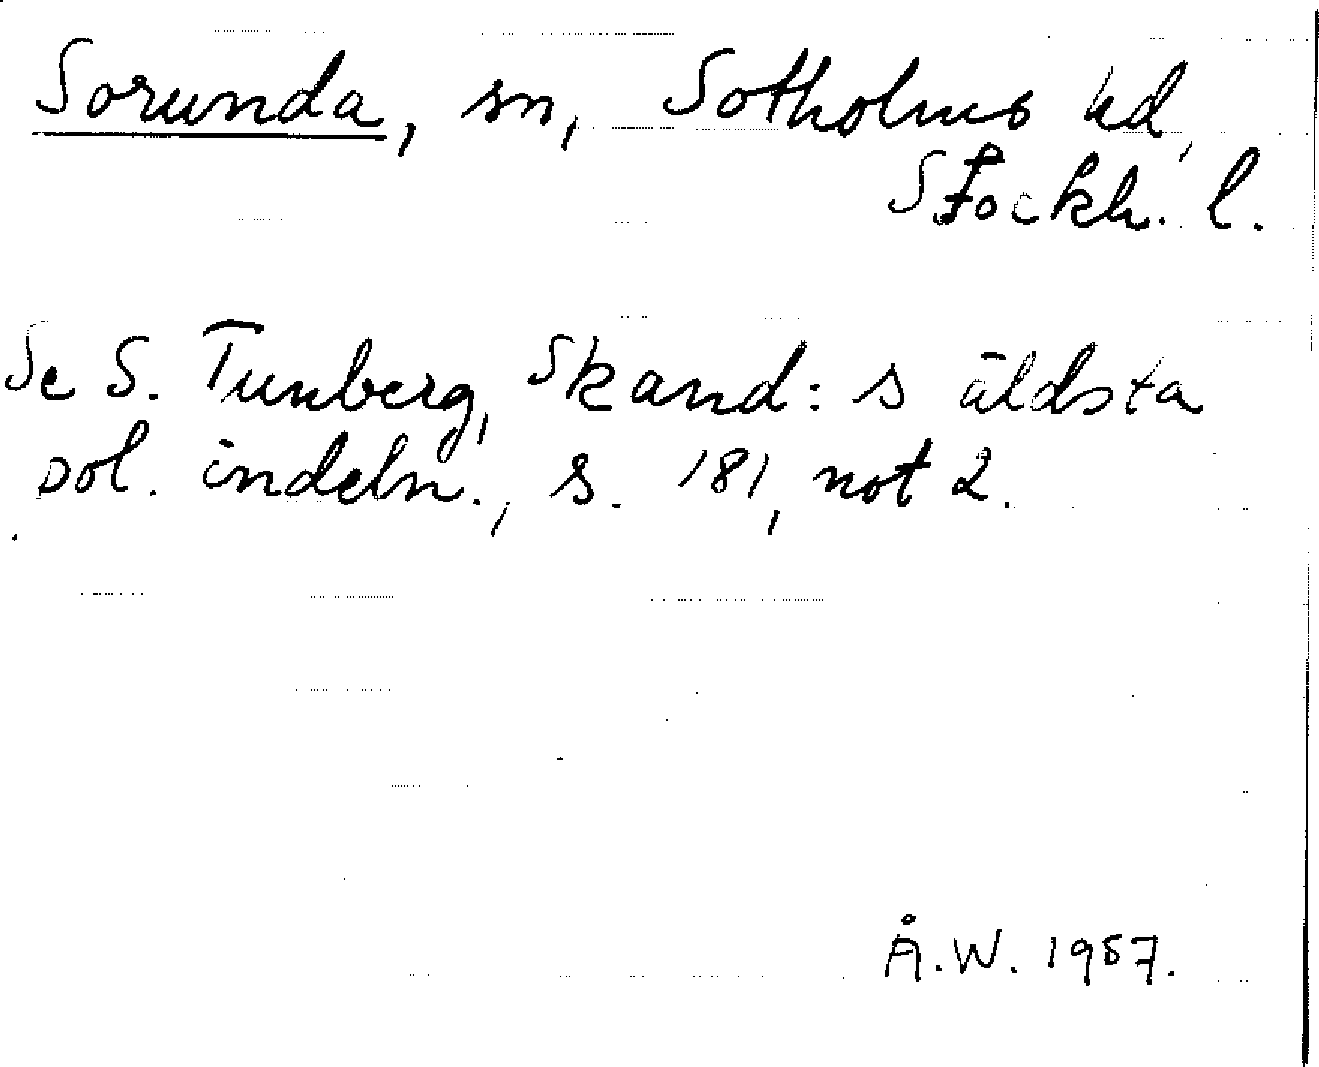 Sorunda, sn, Sotholms hd,
Stockh. l.
Se S. Tunberg, Skand:s äldsta
pol. indeln., s. 181, not 2.
Å.W. 1957.